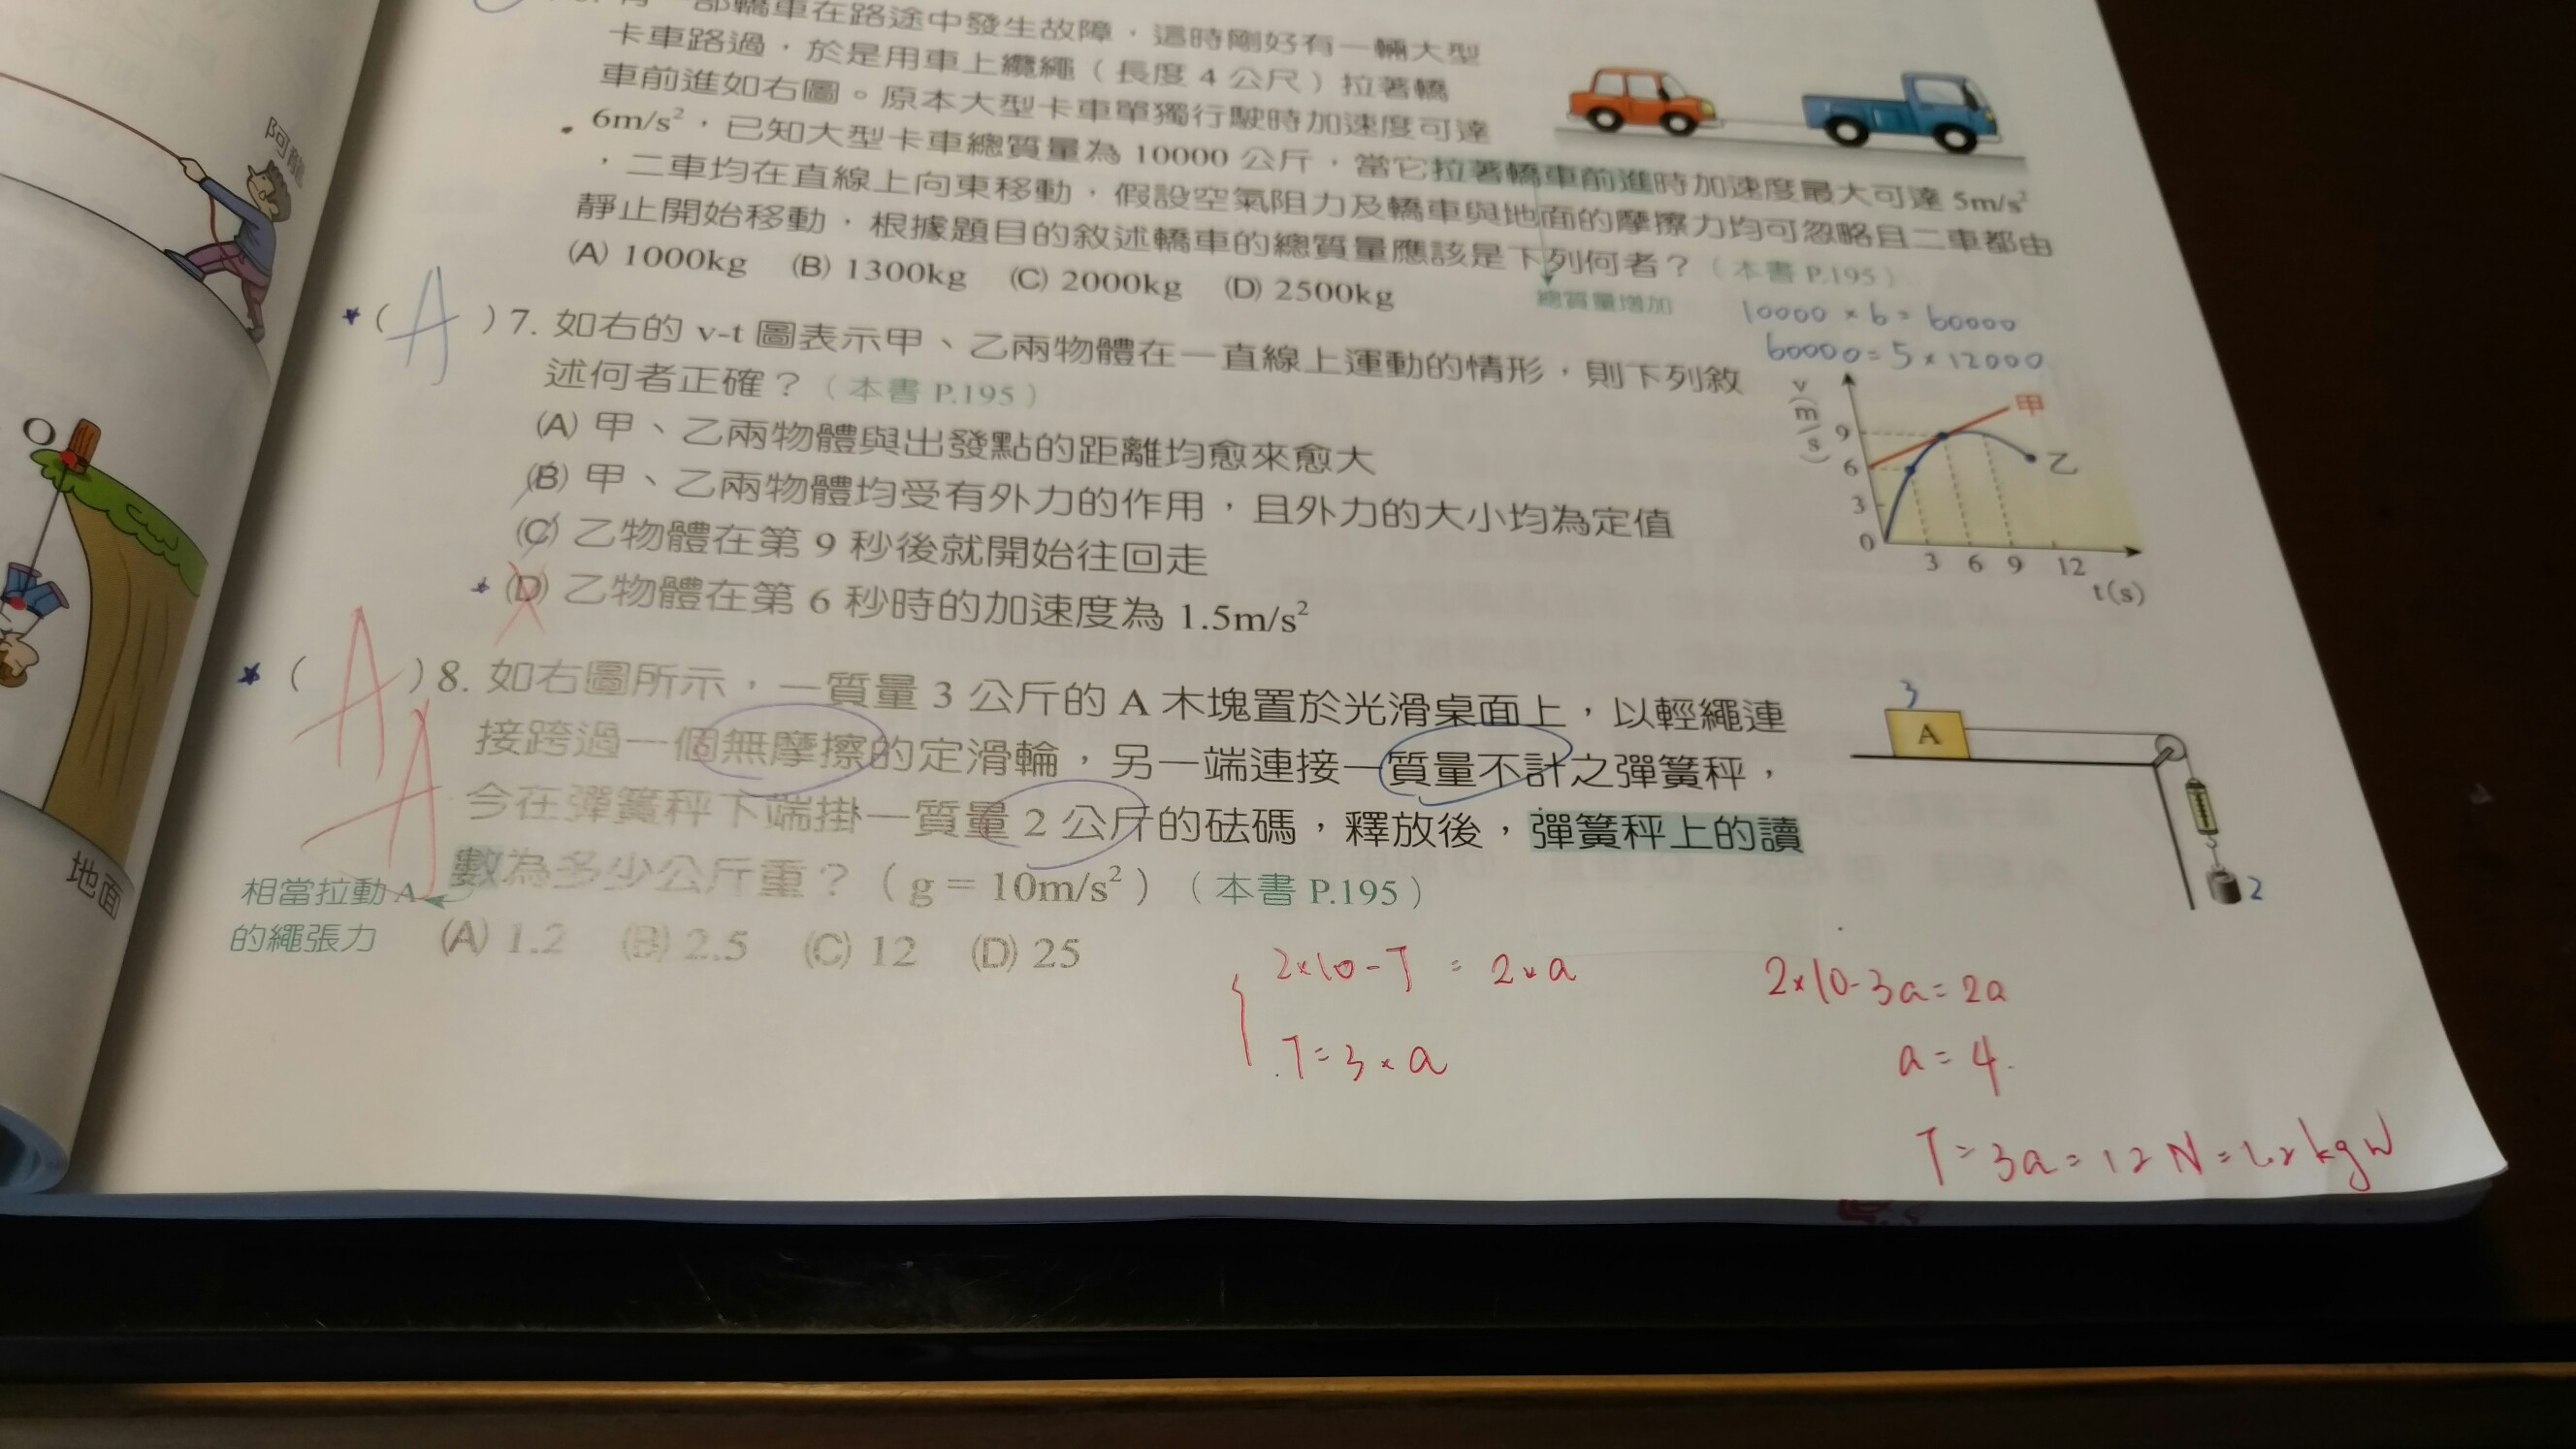 阿龍
O
地面
部轎車在路途中發生故障，這時剛好有一輛大型
卡車路過，於是用車上纜繩（長度 4 公尺）拉著轎
車前進如右圖。原本大型卡車單獨行駛時加速度可達
6m/s²，已知大型卡車總質量為 10000 公斤，當它拉著轎車前進時加速度最大可達 5m/s²
，二車均在直線上向東移動，假設空氣阻力及轎車與地面的摩擦力均可忽略且二車都由
靜止開始移動，根據題目的敘述轎車的總質量應該是下列何者？（本書 P.195）
(A) 1000kg (B) 1300kg (C) 2000kg (D) 2500kg
總質量增加
10000 × 6 = 60000
60000 = 5 × 12000
( A ) 7. 如右的 v-t 圖表示甲、乙兩物體在一直線上運動的情形，則下列敘
述何者正確？（本書 P.195）
(A) 甲、乙兩物體與出發點的距離均愈來愈大
(B) 甲、乙兩物體均受有外力的作用，且外力的大小均為定值
(C) 乙物體在第 9 秒後就開始往回走
(D) 乙物體在第 6 秒時的加速度為 1.5m/s²
v(m/s)
甲
9
乙
6
3
0
3 6 9 12
t(s)
( A ) 8. 如右圖所示，一質量 3 公斤的 A 木塊置於光滑桌面上，以輕繩連
接跨過一個無摩擦的定滑輪，另一端連接一質量不計之彈簧秤，
今在彈簧秤下端掛一質量 2 公斤的砝碼，釋放後，彈簧秤上的讀
數為多少公斤重？（g = 10m/s²）（本書 P.195）
A
相當拉動 A
的繩張力
(A) 1.2 (B) 2.5 (C) 12 (D) 25
3
A
2
2×10-T = 2×a
T = 3×a
2×10-3a = 2a
a = 4
T = 3a = 12N = 1.2kgw